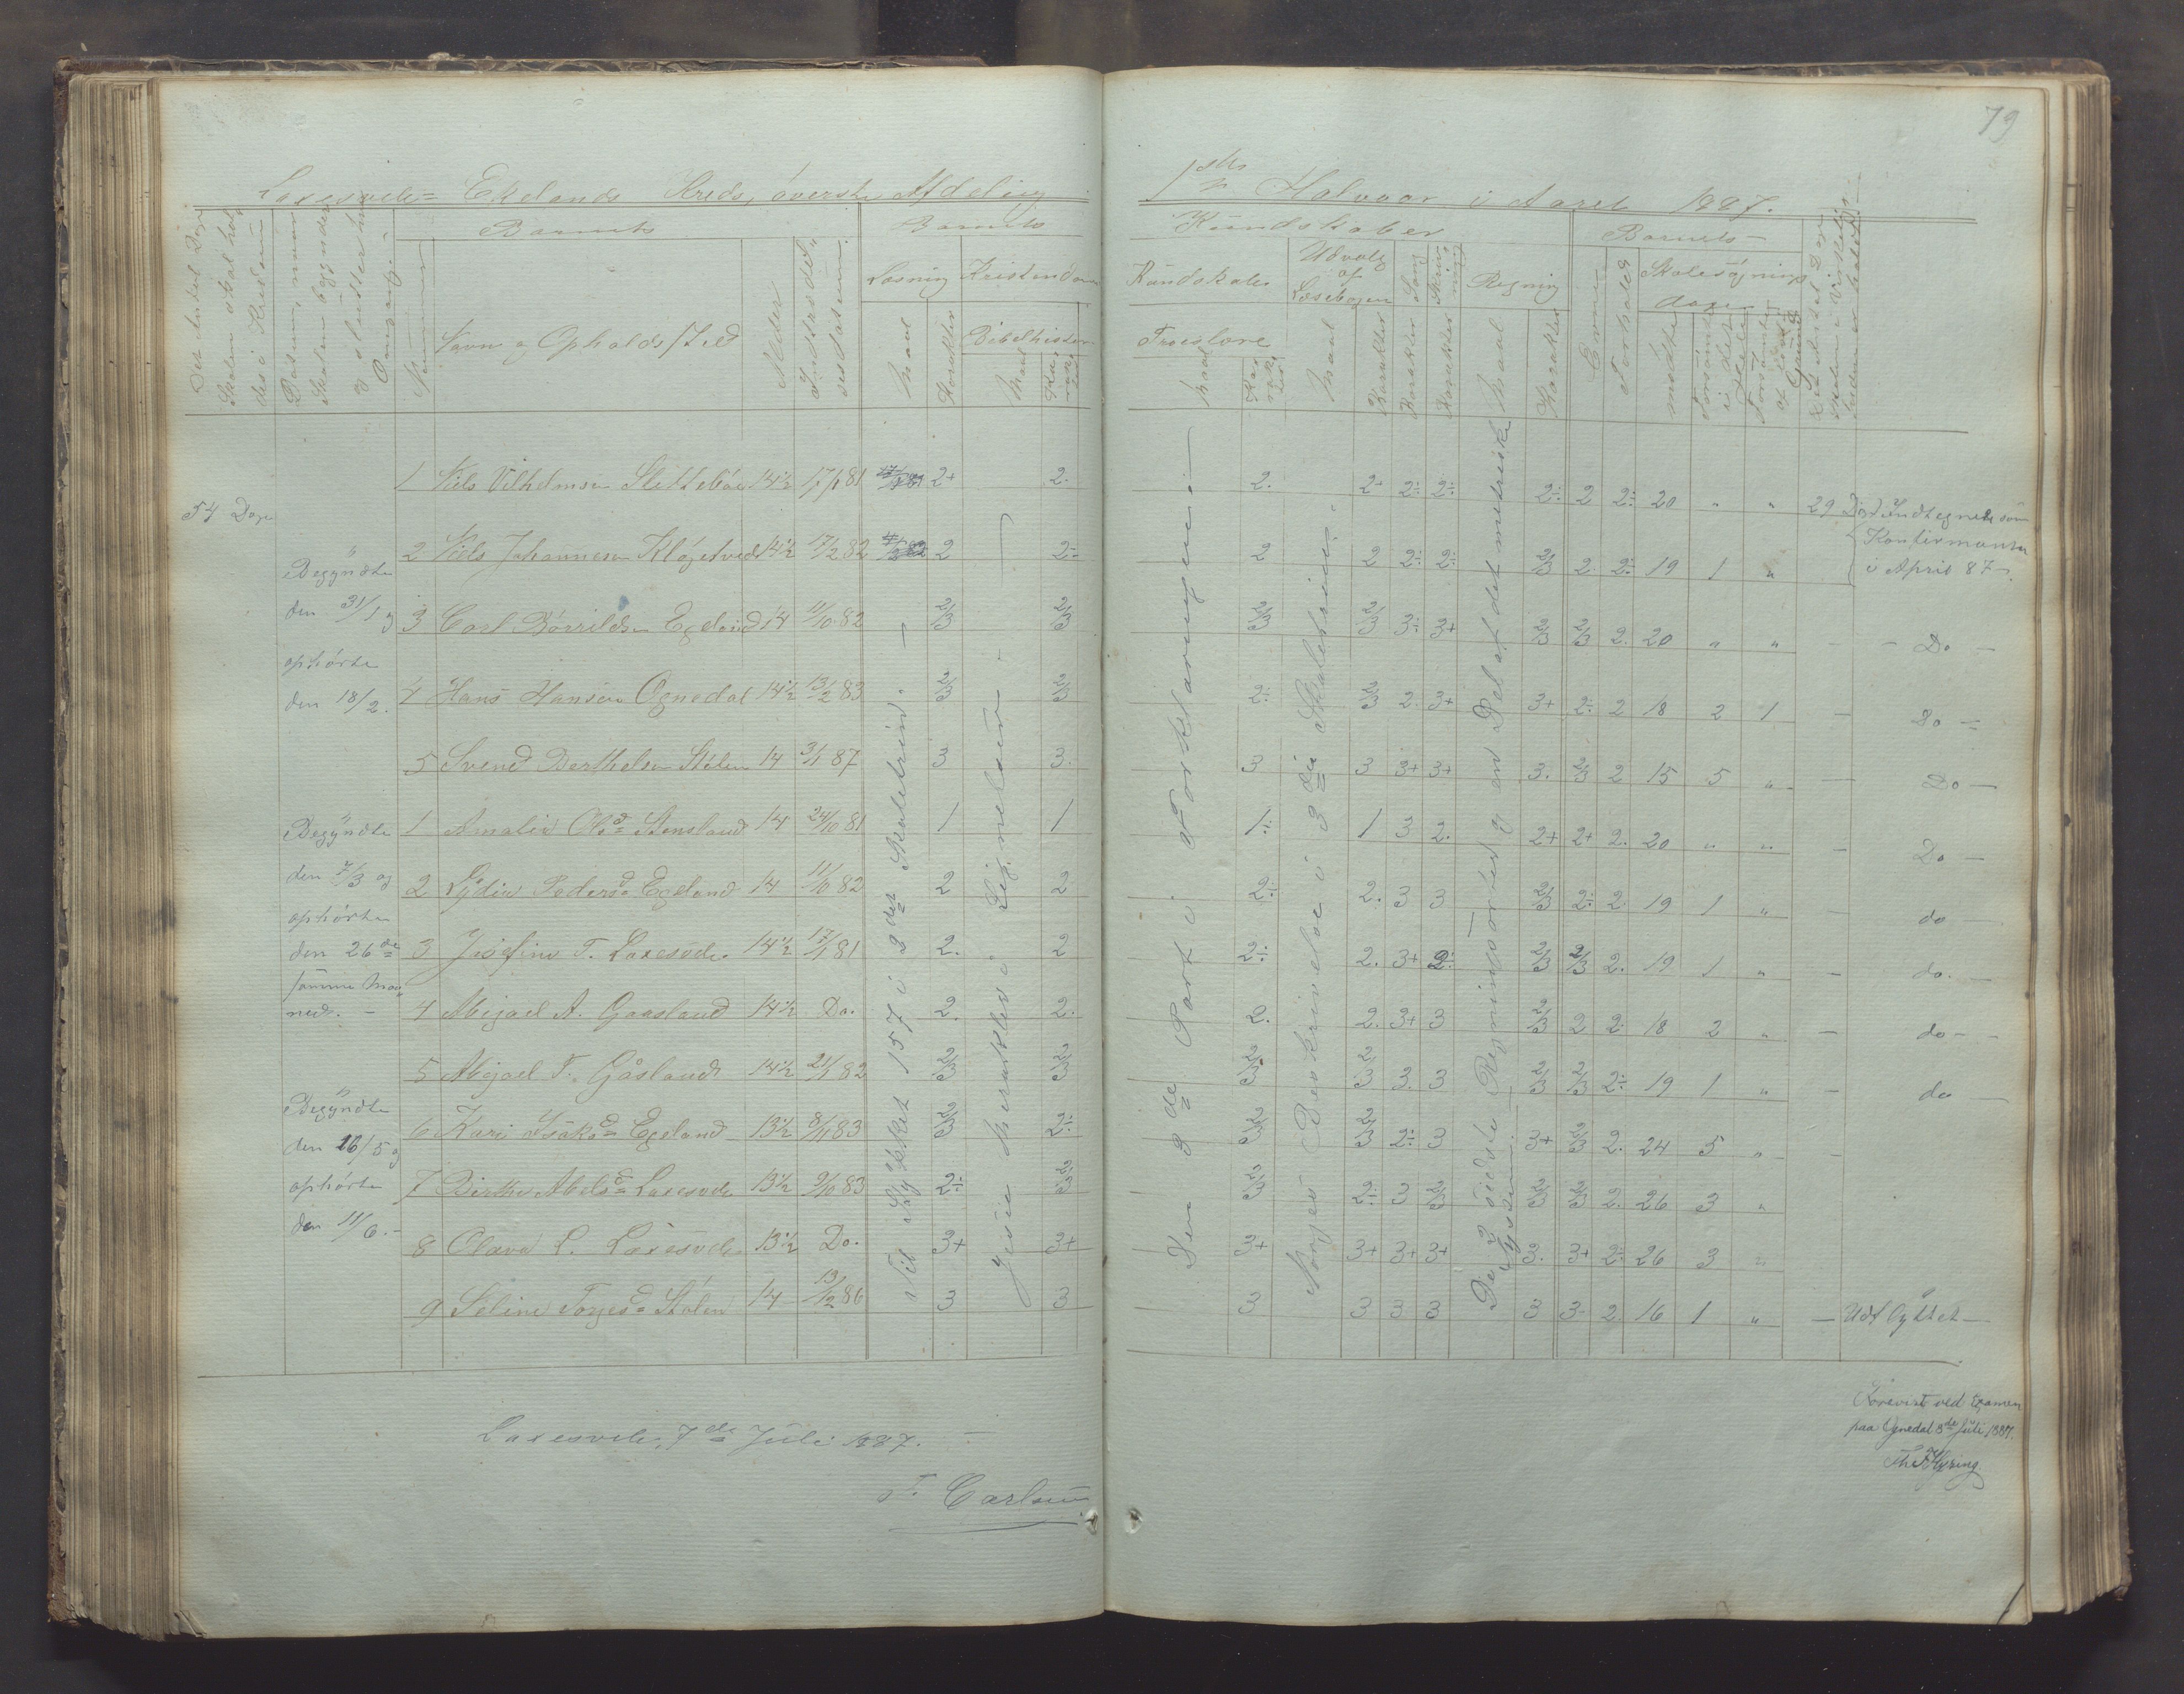 79
Laxesvele= Ekelands Kreds, överste Afdeling
1ste Halvaar i Aaret 1887.
Det Antal Dage Skolen skal holdes i Kredsen
Datum, naar Skolen begynder og slutter hver Omgang
Barnets
Barnets
Nummer
Navn og Opholds Sted
Alder
Indtrædelsesdatum
Læsning
Kristendoms
Maal
Karakter
Bibelhistorie
Maal
Karakter
Kundskaber
Kundskaber
Troeslære
Maal
Karakter
Udvalg af Læsebogen
Maal
Karakter
Sang
Karakter
Skrivning
Karakter
Regning
Maal
Karakter
Barnets
Evner
Forhold
Skolesøgningsdage
mødte
forsømte i det Hele
forsømte af lovl. Grund
Det Antal Dage Skolen i Virkeligheden er holdt
54 Dage
Begÿndte
den 31/1 og
ophörte
den 18/2.
Begÿndte
den 7/3 og
ophörte
den 26de
samme Maa
ned. -
Begÿndte
den 16/5 og
ophörte
den 11/6.-
1 Niels Vilhelmsen Slettebøe 14½ 17/1 81 2+ 2. 2. 2- 2÷ 2÷ 2÷ 2 2÷ 20 " " 29 Dage Indtegnede som
Konfirmanter
i April 87.
2 Niels Johannesen Kløgetvedt 14½ 17/2 82 2 2÷ 2 2 2÷ 2÷ 2/3 2 2÷ 19 1 "
3 Carl Börrildsen Egeland 14 11/10 82 2/3 2/3 2/3 2/3 3÷ 3+ 2/3 2/3 2. 20 " " - - Do -
4 Hans Hansen Ognedal 14½ 13/2 83 2/3 2/3 2÷ 2/3 2. 3+ 3+ 2÷ 2 18 2 1 - Do -
5 Svend Berthelsen Stölen 14 31/1 87 3 3. 3 3 3+ 3+ 3. 2/3 2 15 5 " - Do -
1 Amalie Olsd Stensland 14 24/10 81 1 1 1÷ 1 3 2. 2+ 2+ 2. 20 " " - Do -
2 Lydia Pedersd Egeland 14 11/10 82 2 2 2÷ 2. 3 3 2/3 2÷ 2 19 1 " - do -
3 Josefine T. Laxesvele 14½ 17/1 81 2. 2 2÷ 2. 3+ 2÷ 2/3 2/3 2. 19 1 " - do. -
4 Abigael A. Gaasland 14½ Do. 2. 2. 2. 2. 3+ 3 2/3 2 2. 18 2 " - do -
5 Abigael T. Gåsland 14½ 21/1 82 2/3 2/3 2/3 2/3 3. 3 2/3 2/3 2÷ 19 1 " - do -
6 Kari Isaksd Egeland 13½ 8/1 83 2/3 2÷ 2/3 2/3 2÷ 3 3+ 2/3 2. 24 5 " -
7 Birthe Abelsd Laxesvele 13½ 9/10 83 2÷ 2/3 2/3 2÷ 3 2/3 2/3 2/3 2. 26 3 "
8 Olava L. Laxesvele 13½ Do. 3+ 3+ 3+ 3+ 3+ 3+ 3. 3+ 2÷ 26 3 "
9 Seline Torgesd Stölen 14 13/2 86 3 3 3 3 3 3 3 3 2. 16 1 " - Udflÿttet -
Til Stykket 157 i 3det Skoletrin. -
Jesu Mirakler i Lignelsen -
Den 3de Part i Forklaringen -
Norges Beskrivelse i 3die Skoletrin -
De 2 sidste Regningsarter og en Del af det metriske System.
Laxesvele, 7de Juli 1887. -
T. Carlsen
Forevist ved Examen
paa Ognedal 8de Juli 1887.